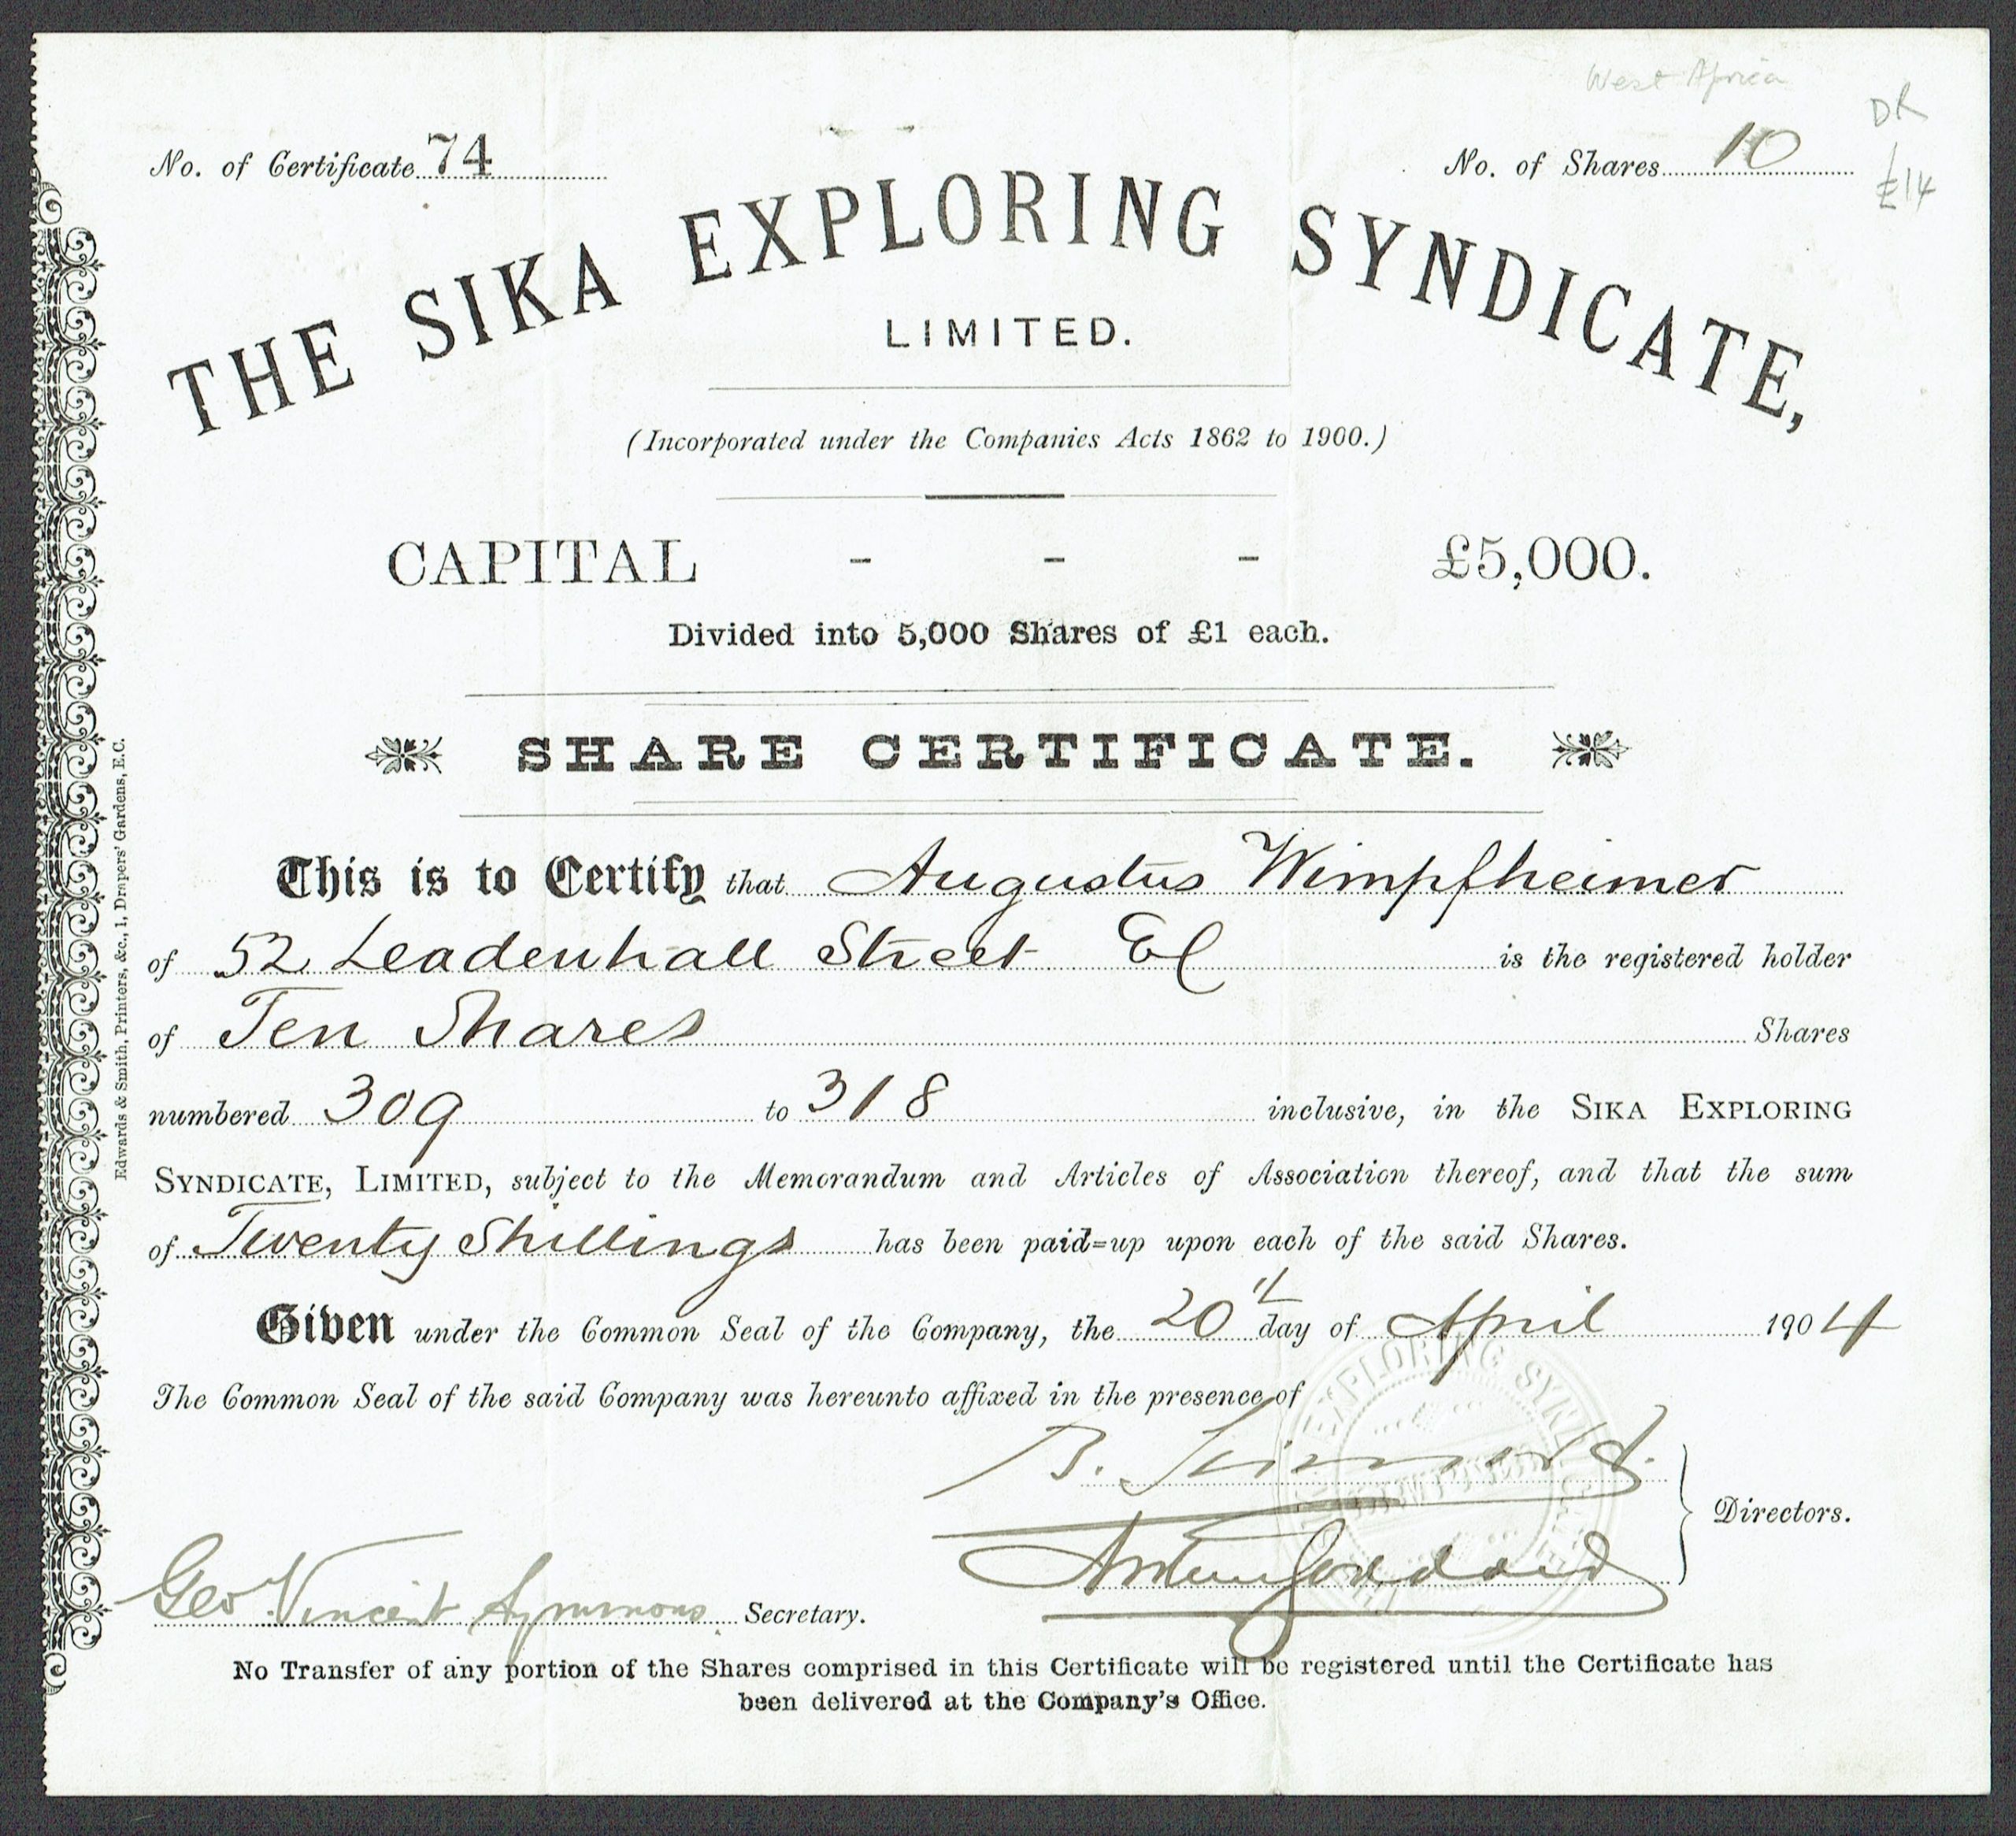 West Africa
DR
£14
No. of Certificate 74
No. of Shares 10
THE SIKA EXPLORING SYNDICATE,
LIMITED.
(Incorporated under the Companies Acts 1862 to 1900.)
CAPITAL - - - £5,000.
Divided into 5,000 Shares of £1 each.
SHARE CERTIFICATE.
This is to Certify that Augustus Wimpfheimer
of 52 Leadenhall Street EC is the registered holder
of Ten Shares Shares
numbered 309 to 318 inclusive, in the SIKA EXPLORING
SYNDICATE, LIMITED, subject to the Memorandum and Articles of Association thereof, and that the sum
of Twenty Shillings has been paid=up upon each of the said Shares.
Given under the Common Seal of the Company, the 20th day of April 1904
The Common Seal of the said Company was hereunto affixed in the presence of
EXPLORING SYNDICATE
B.
Arthur Goddard
Directors.
Geo Vincent Symmons Secretary.
No Transfer of any portion of the Shares comprised in this Certificate will be registered until the Certificate has
been delivered at the Company's Office.
Edwards & Smith, Printers, &c., 1, Drapers' Gardens, E.C.